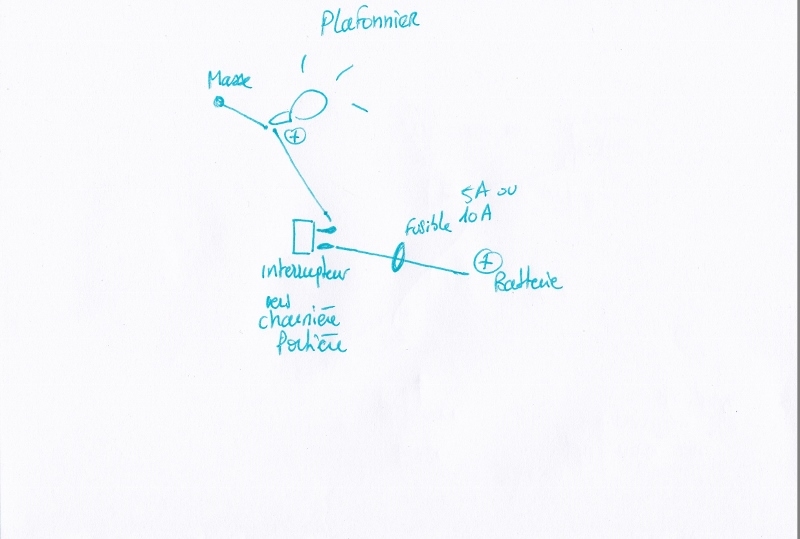 Plafonnier
Masse
+
5A ou
10A
Fusible
+
Batterie
interrupteur
vers
charnière
Portière